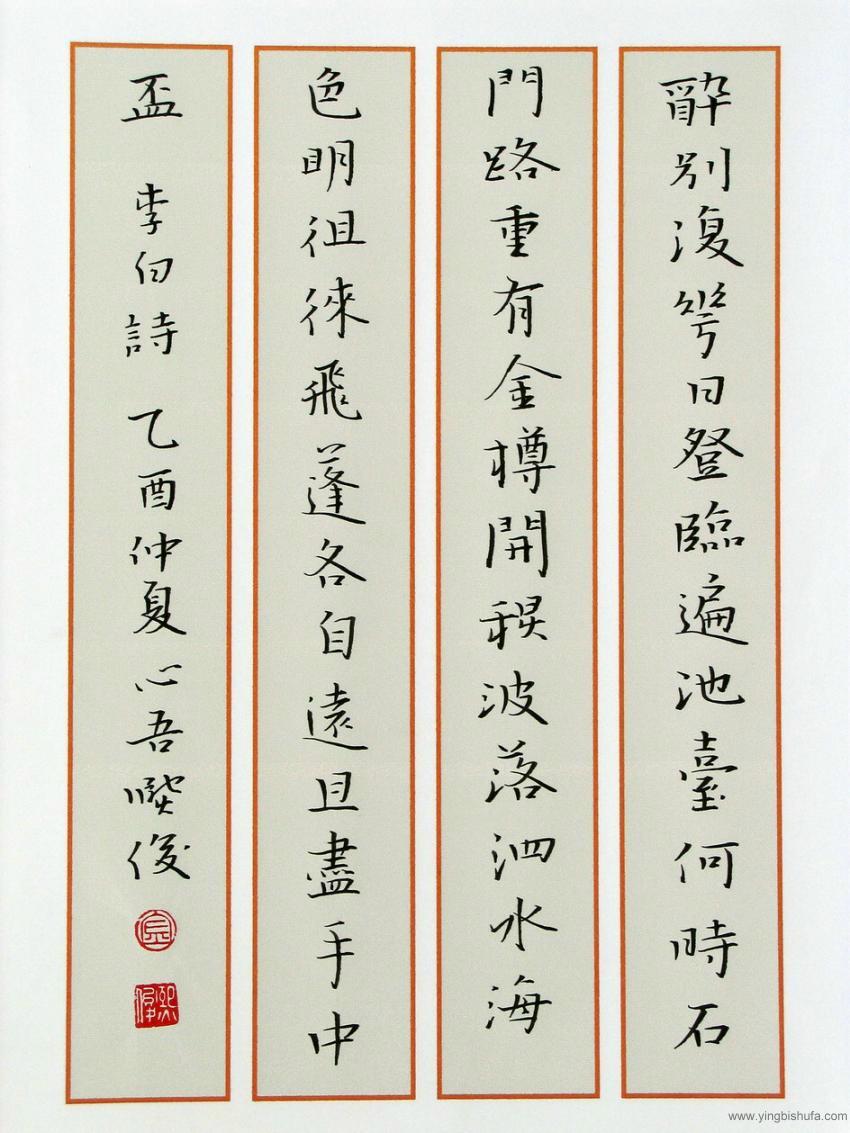 醉別復幾日登臨遍池臺何時石
門路重有金樽開秋波落泗水海
色明徂徠飛蓬各自遠且盡手中
盃 李白詩 乙酉仲夏心吾熙俊
www.yingbishufa.com